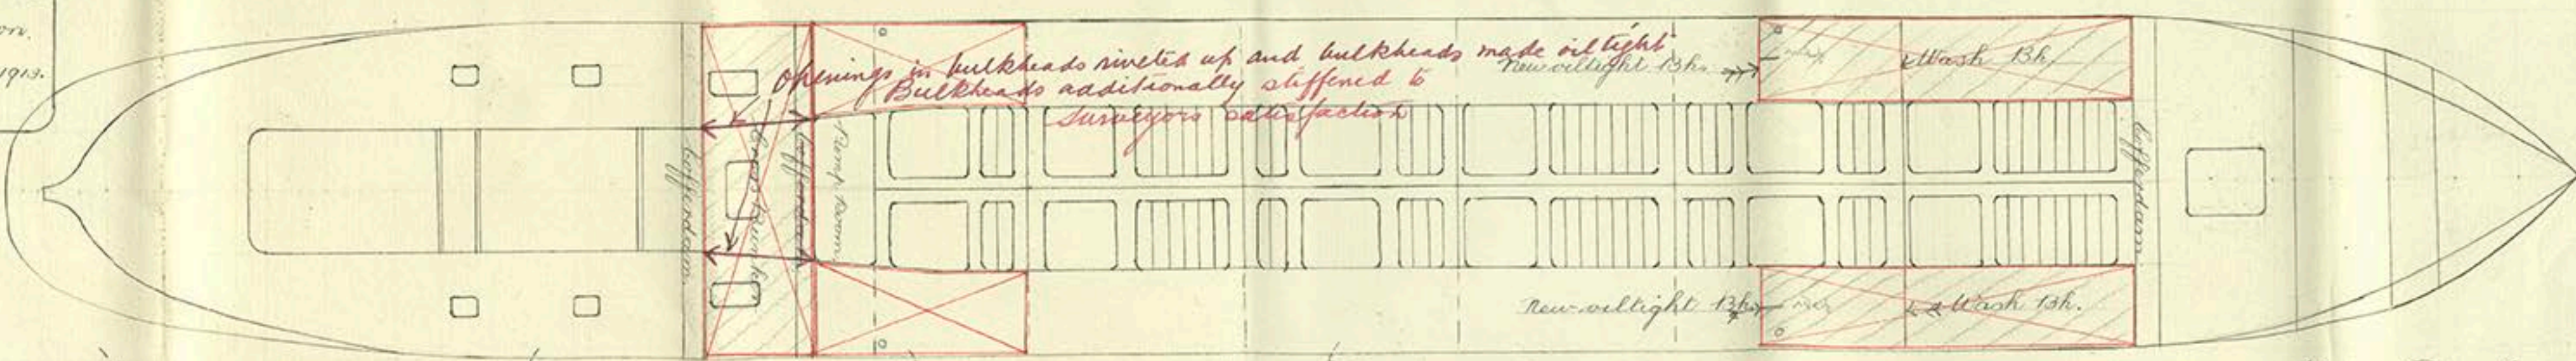 on.
1913.
Openings in bulkheads riveted up and bulkheads made oiltight
Bulkheads additionally stiffened to
Surveyors satisfaction
New oiltight Bh.
Wash Bh.
Cofferdam
Cross Bunker
Cofferdam
Pump Room
Cofferdam
New oiltight Bh.
Wash Bh.